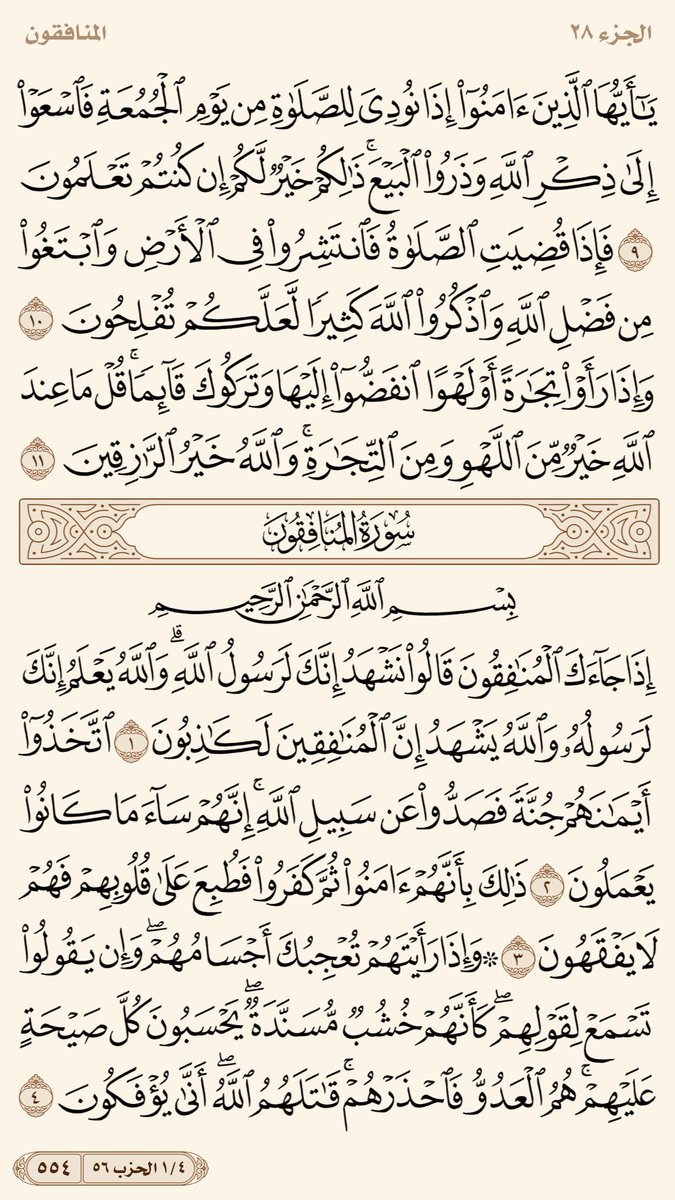 الجزء ٢٨ المنافقون
يَٰٓأَيُّهَا ٱلَّذِينَ ءَامَنُوٓا۟ إِذَا نُودِىَ لِلصَّلَوٰةِ مِن يَوْمِ ٱلْجُمُعَةِ فَٱسْعَوْا۟
إِلَىٰ ذِكْرِ ٱللَّهِ وَذَرُوا۟ ٱلْبَيْعَ ۚ ذَٰلِكُمْ خَيْرٌ لَّكُمْ إِن كُنتُمْ تَعْلَمُونَ
٩ فَإِذَا قُضِيَتِ ٱلصَّلَوٰةُ فَٱنتَشِرُوا۟ فِى ٱلْأَرْضِ وَٱبْتَغُوا۟
مِن فَضْلِ ٱللَّهِ وَٱذْكُرُوا۟ ٱللَّهَ كَثِيرًا لَّعَلَّكُمْ تُفْلِحُونَ ١٠
وَإِذَا رَأَوْا۟ تِجَٰرَةً أَوْ لَهْوًا ٱنفَضُّوٓا۟ إِلَيْهَا وَتَرَكُوكَ قَآئِمًا ۚ قُلْ مَا عِندَ
ٱللَّهِ خَيْرٌ مِّنَ ٱللَّهْوِ وَمِنَ ٱلتِّجَٰرَةِ ۚ وَٱللَّهُ خَيْرُ ٱلرَّٰزِقِينَ ١١
سُورَةُ المُنَافِقُونَ
بِسْمِ ٱللَّهِ ٱلرَّحْمَٰنِ ٱلرَّحِيمِ
إِذَا جَآءَكَ ٱلْمُنَٰفِقُونَ قَالُوا۟ نَشْهَدُ إِنَّكَ لَرَسُولُ ٱللَّهِ ۗ وَٱللَّهُ يَعْلَمُ إِنَّكَ
لَرَسُولُهُۥ وَٱللَّهُ يَشْهَدُ إِنَّ ٱلْمُنَٰفِقِينَ لَكَٰذِبُونَ ١ ٱتَّخَذُوٓا۟
أَيْمَٰنَهُمْ جُنَّةً فَصَدُّوا۟ عَن سَبِيلِ ٱللَّهِ ۚ إِنَّهُمْ سَآءَ مَا كَانُوا۟
يَعْمَلُونَ ٢ ذَٰلِكَ بِأَنَّهُمْ ءَامَنُوا۟ ثُمَّ كَفَرُوا۟ فَطُبِعَ عَلَىٰ قُلُوبِهِمْ فَهُمْ
لَا يَفْقَهُونَ ٣ ۞ وَإِذَا رَأَيْتَهُمْ تُعْجِبُكَ أَجْسَامُهُمْ ۖ وَإِن يَقُولُوا۟
تَسْمَعْ لِقَوْلِهِمْ ۖ كَأَنَّهُمْ خُشُبٌ مُّسَنَّدَةٌ ۖ يَحْسَبُونَ كُلَّ صَيْحَةٍ
عَلَيْهِمْ ۚ هُمُ ٱلْعَدُوُّ فَٱحْذَرْهُمْ ۚ قَٰتَلَهُمُ ٱللَّهُ ۖ أَنَّىٰ يُؤْفَكُونَ ٤
١/٤ الحزب ٥٦ ٥٥٤